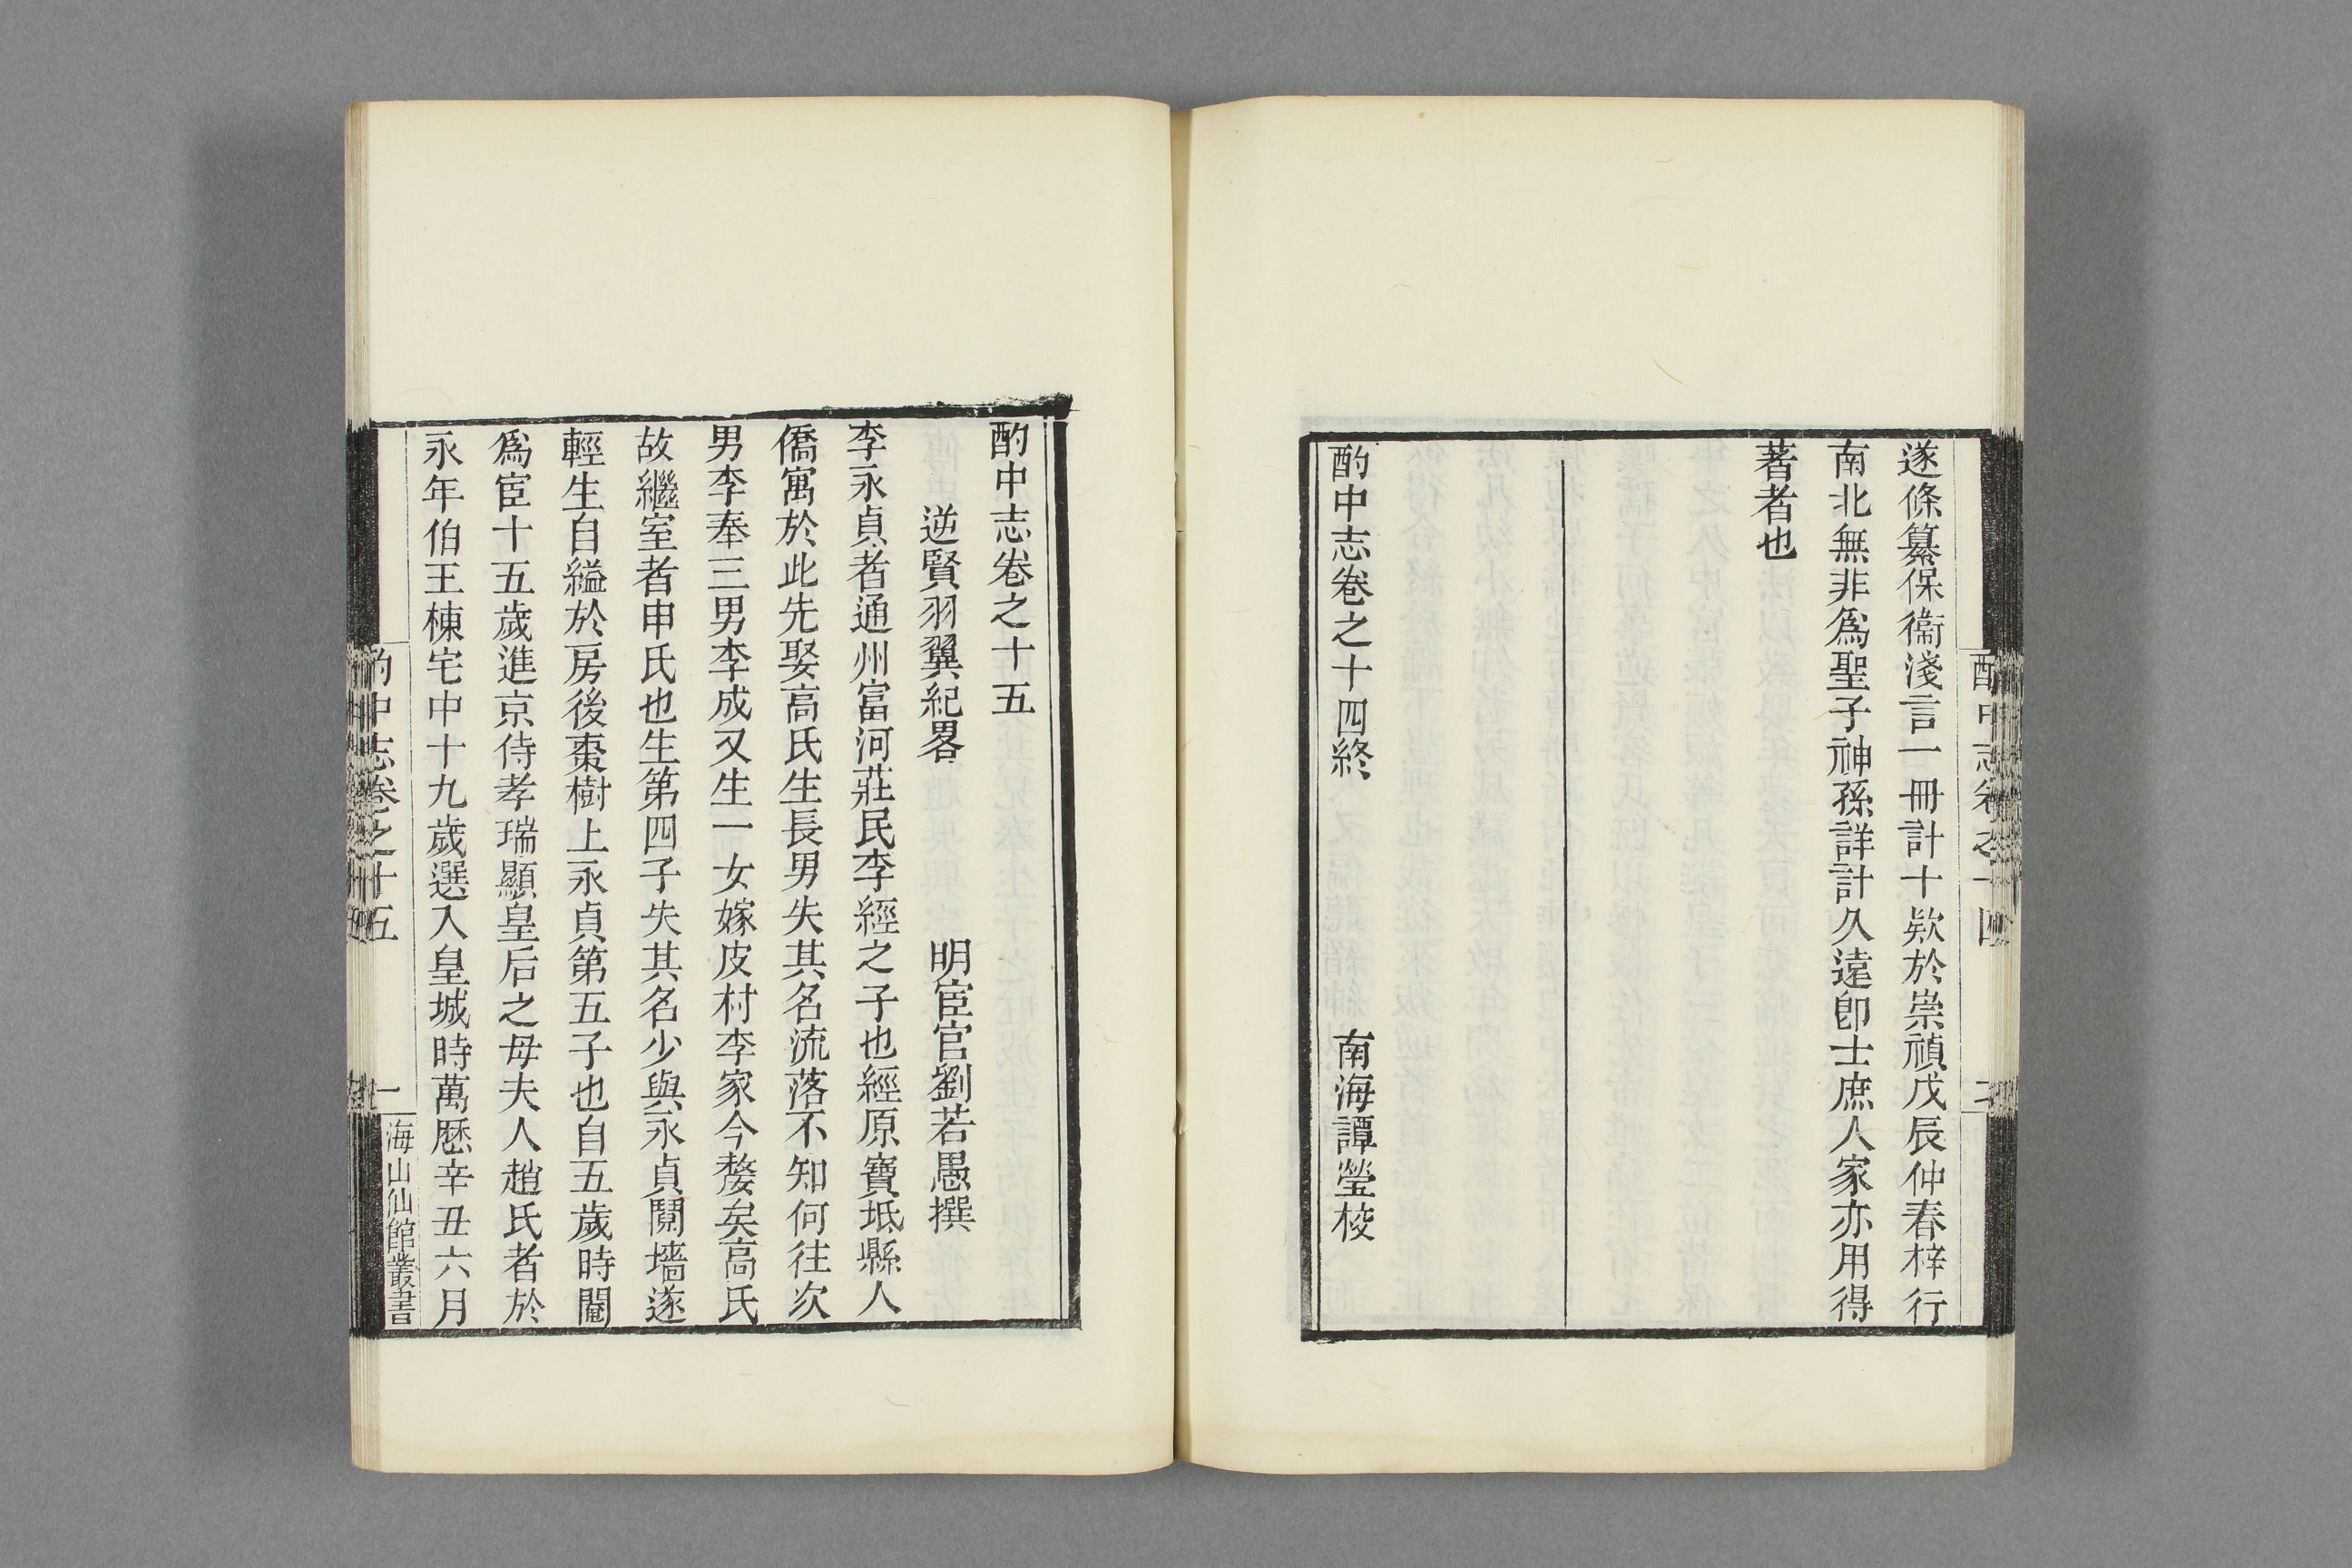 酌中志卷之十四
二
遂條纂保衞淺言一冊計十欵於崇禎戊辰仲春梓行
南北無非爲聖子神孫詳計久遠卽士庶人家亦用得
著者也
酌中志卷之十四終
南海譚瑩校
酌中志卷之十五
逆賢羽翼紀畧
明宦官劉若愚撰
李永貞者通州富河莊民李經之子也經原寶坻縣人
僑寓於此先娶高氏生長男失其名流落不知何往次
男李奉三男李成又生一女嫁皮村李家今嫠矣高氏
故繼室者申氏也生第四子失其名少與永貞鬩墻遂
輕生自縊於房後棗樹上永貞第五子也自五歲時閹
爲宦十五歲進京侍孝瑞顯皇后之母夫人趙氏者於
永年伯王棟宅中十九歲選入皇城時萬厯辛丑六月
酌中志卷之十五
一
海山仙館叢書